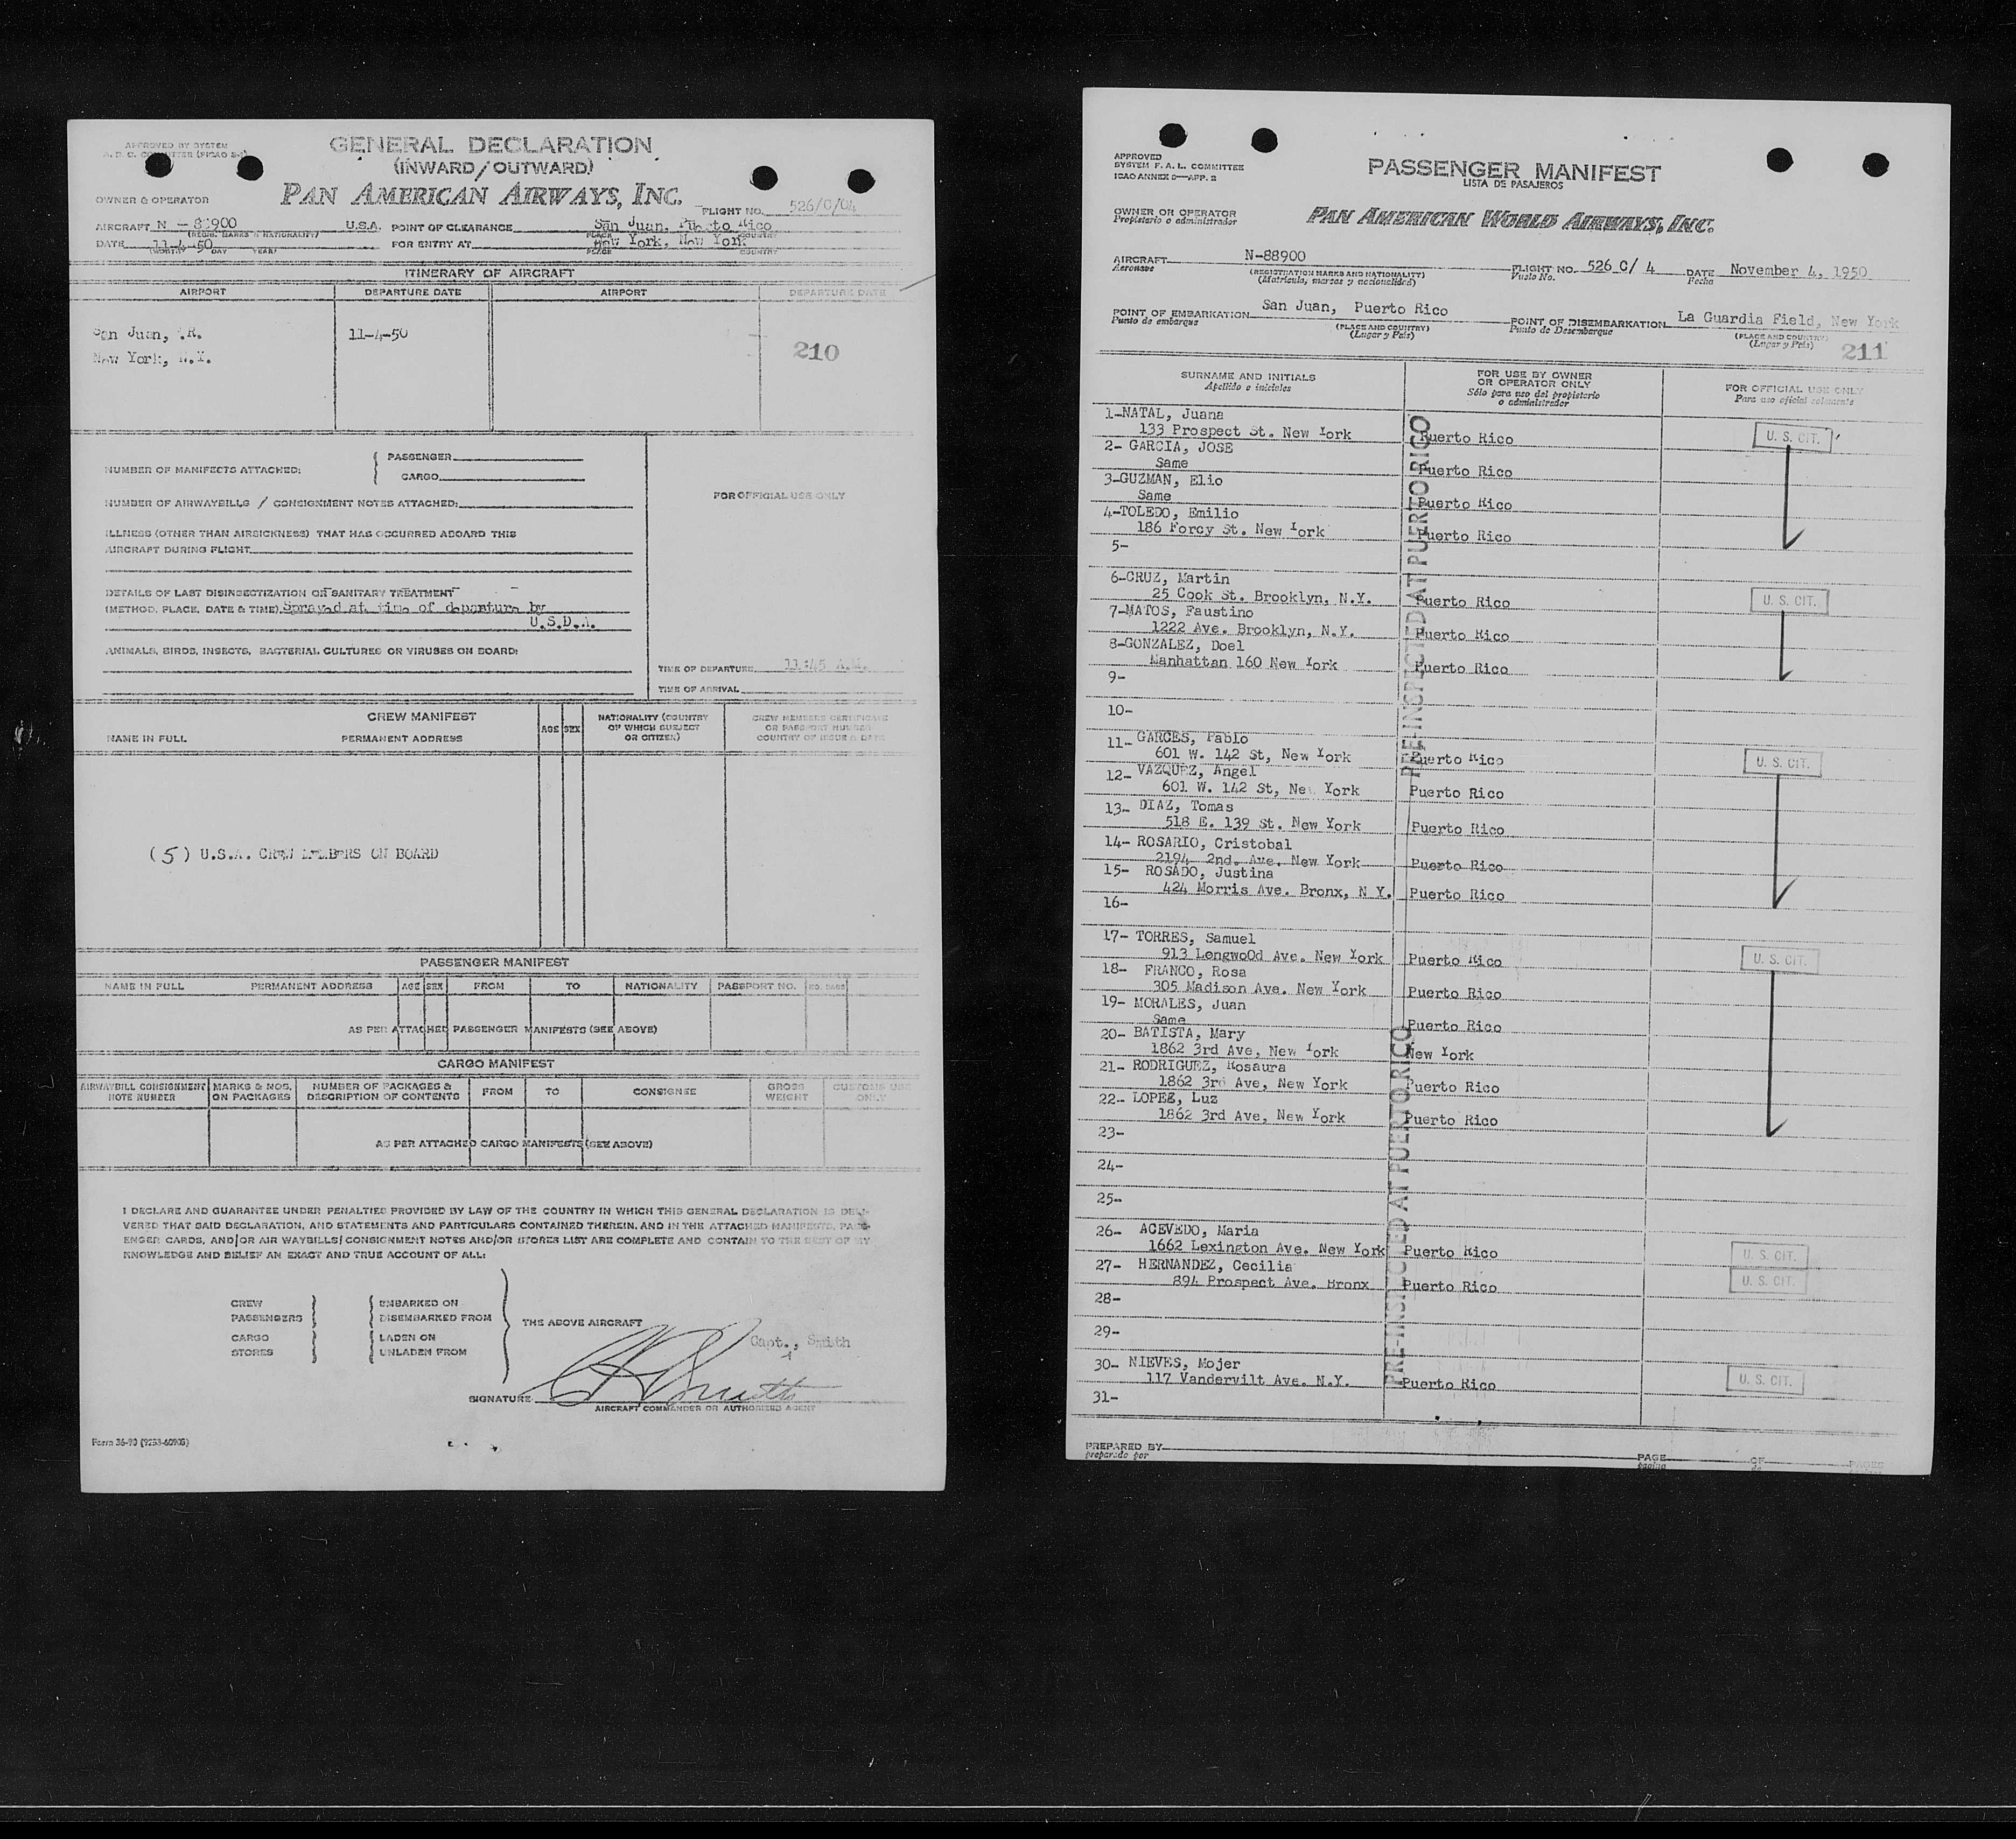 APPROVED BY SYSTEM
GENERAL DECLARATION
(INWARD / OUTWARD)
PAN AMERICAN AIRWAYS, INC.
OWNER & OPERATOR
FLIGHT NO. 526/C/04
AIRCRAFT N - 88900 U.S.A. POINT OF CLEARANCE San Juan, Puerto Rico
(REGIS. MARKS & NATIONALITY) PLACE COUNTRY
DATE 11-4-50 FOR ENTRY AT New York, New York
(MONTH DAY YEAR) PLACE COUNTRY
ITINERARY OF AIRCRAFT
AIRPORT DEPARTURE DATE AIRPORT DEPARTURE DATE
San Juan, P.R. 11-4-50
New York, N.Y.
210
NUMBER OF MANIFESTS ATTACHED: PASSENGER
CARGO
NUMBER OF AIRWAYBILLS / CONSIGNMENT NOTES ATTACHED:
FOR OFFICIAL USE ONLY
ILLNESS (OTHER THAN AIRSICKNESS) THAT HAS OCCURRED ABOARD THIS
AIRCRAFT DURING FLIGHT
DETAILS OF LAST DISINSECTIZATION OR SANITARY TREATMENT
(METHOD, PLACE, DATE & TIME) Sprayed at time of departure by
U.S.D.A.
ANIMALS, BIRDS, INSECTS, BACTERIAL CULTURES OR VIRUSES ON BOARD:
TIME OF DEPARTURE 11:45 A.M.
TIME OF ARRIVAL
CREW MANIFEST
NAME IN FULL PERMANENT ADDRESS AGE SEX NATIONALITY (COUNTRY OF WHICH SUBJECT OR CITIZEN) CREW MEMBERS CERTIFICATE OR PASSPORT NUMBER COUNTRY OF ISSUE & DATE
(5) U.S.A. CREW MEMBERS ON BOARD
PASSENGER MANIFEST
NAME IN FULL PERMANENT ADDRESS AGE SEX FROM TO NATIONALITY PASSPORT NO. NO. BAGS
AS PER ATTACHED PASSENGER MANIFESTS (SEE ABOVE)
CARGO MANIFEST
AIRWAYBILL CONSIGNMENT NOTE NUMBER MARKS & NOS. ON PACKAGES NUMBER OF PACKAGES & DESCRIPTION OF CONTENTS FROM TO CONSIGNEE GROSS WEIGHT CUSTOMS USE ONLY
AS PER ATTACHED CARGO MANIFESTS (SEE ABOVE)
I DECLARE AND GUARANTEE UNDER PENALTIES PROVIDED BY LAW OF THE COUNTRY IN WHICH THIS GENERAL DECLARATION IS DELI-
VERED THAT SAID DECLARATION, AND STATEMENTS AND PARTICULARS CONTAINED THEREIN, AND IN THE ATTACHED MANIFESTS, PASS-
ENGER CARDS, AND/OR AIR WAYBILLS/CONSIGNMENT NOTES AND/OR STORES LIST ARE COMPLETE AND CONTAIN TO THE BEST OF MY
KNOWLEDGE AND BELIEF AN EXACT AND TRUE ACCOUNT OF ALL:
CREW EMBARKED ON
PASSENGERS DISEMBARKED FROM THE ABOVE AIRCRAFT
CARGO LADEN ON
STORES UNLADEN FROM
Capt., Smith
SIGNATURE
AIRCRAFT COMMANDER OR AUTHORIZED AGENT
APPROVED
SYSTEM F. A. L. COMMITTEE
ICAO ANNEX 9—APP. 2
PASSENGER MANIFEST
LISTA DE PASAJEROS
OWNER OR OPERATOR
Propietario o administrador
PAN AMERICAN WORLD AIRWAYS, INC.
AIRCRAFT N-88900 FLIGHT NO. 526 C/ 4 DATE November 4, 1950
Aeronave (REGISTRATION MARKS AND NATIONALITY) Vuelo No. Fecha
(Matrícula, marcas y nacionalidad)
POINT OF EMBARKATION San Juan, Puerto Rico POINT OF DISEMBARKATION La Guardia Field, New York
Punto de embarque (PLACE AND COUNTRY) Punto de Desembarque (PLACE AND COUNTRY)
(Lugar y País) (Lugar y País)
211
SURNAME AND INITIALS FOR USE BY OWNER OR OPERATOR ONLY FOR OFFICIAL USE ONLY
Apellido e iniciales Sólo para uso del propietario o administrador Para uso oficial solamente
1-NATAL, Juana
133 Prospect St. New York Puerto Rico U. S. CIT.
2- GARCIA, JOSE
Same Puerto Rico
3-GUZMAN, Elio
Same Puerto Rico
4-TOLEDO, Emilio
186 Forcy St. New York Puerto Rico
5-
6-CRUZ, Martin
25 Cook St. Brooklyn, N.Y. Puerto Rico U. S. CIT.
7-MATOS, Faustino
1222 Ave. Brooklyn, N.Y. Puerto Rico
8-GONZALEZ, Doel
Manhattan 160 New York Puerto Rico
9-
10-
11- GARCES, Pablo
601 W. 142 St, New York Puerto Rico U. S. CIT.
12- VAZQUEZ, Angel
601 W. 142 St, New York Puerto Rico
13- DIAZ, Tomas
518 E. 139 St. New York Puerto Rico
14- ROSARIO, Cristobal
2194 2nd. Ave. New York Puerto Rico
15- ROSADO, Justina
424 Morris Ave. Bronx, N Y. Puerto Rico
16-
17- TORRES, Samuel
913 LongwoOd Ave. New York Puerto Rico U. S. CIT.
18- FRANCO, Rosa
305 Madison Ave. New York Puerto Rico
19- MORALES, Juan
Same Puerto Rico
20- BATISTA, Mary
1862 3rd Ave, New York New York
21- RODRIGUEZ, Rosaura
1862 3rd Ave, New York Puerto Rico
22- LOPEZ, Luz
1862 3rd Ave, New York Puerto Rico
23-
24-
25-
26- ACEVEDO, Maria
1662 Lexington Ave. New York Puerto Rico U. S. CIT.
27- HERNANDEZ, Cecilia
894 Prospect Ave. Bronx Puerto Rico U. S. CIT.
28-
29-
30- NIEVES, Mojer
117 Vandervilt Ave. N.Y. Puerto Rico U. S. CIT.
31-
PRE-INSPECTED AT PUERTO RICO
PRE-INSPECTED AT PUERTO RICO
PREPARED BY PAGE OF PAGES
preparado por página